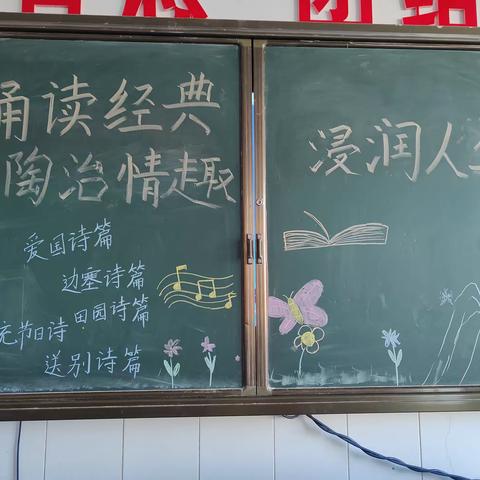 诵读经典
陶治情趣
爱国诗篇
边塞诗篇
节日诗 田园诗篇
送别诗篇
浸润人生